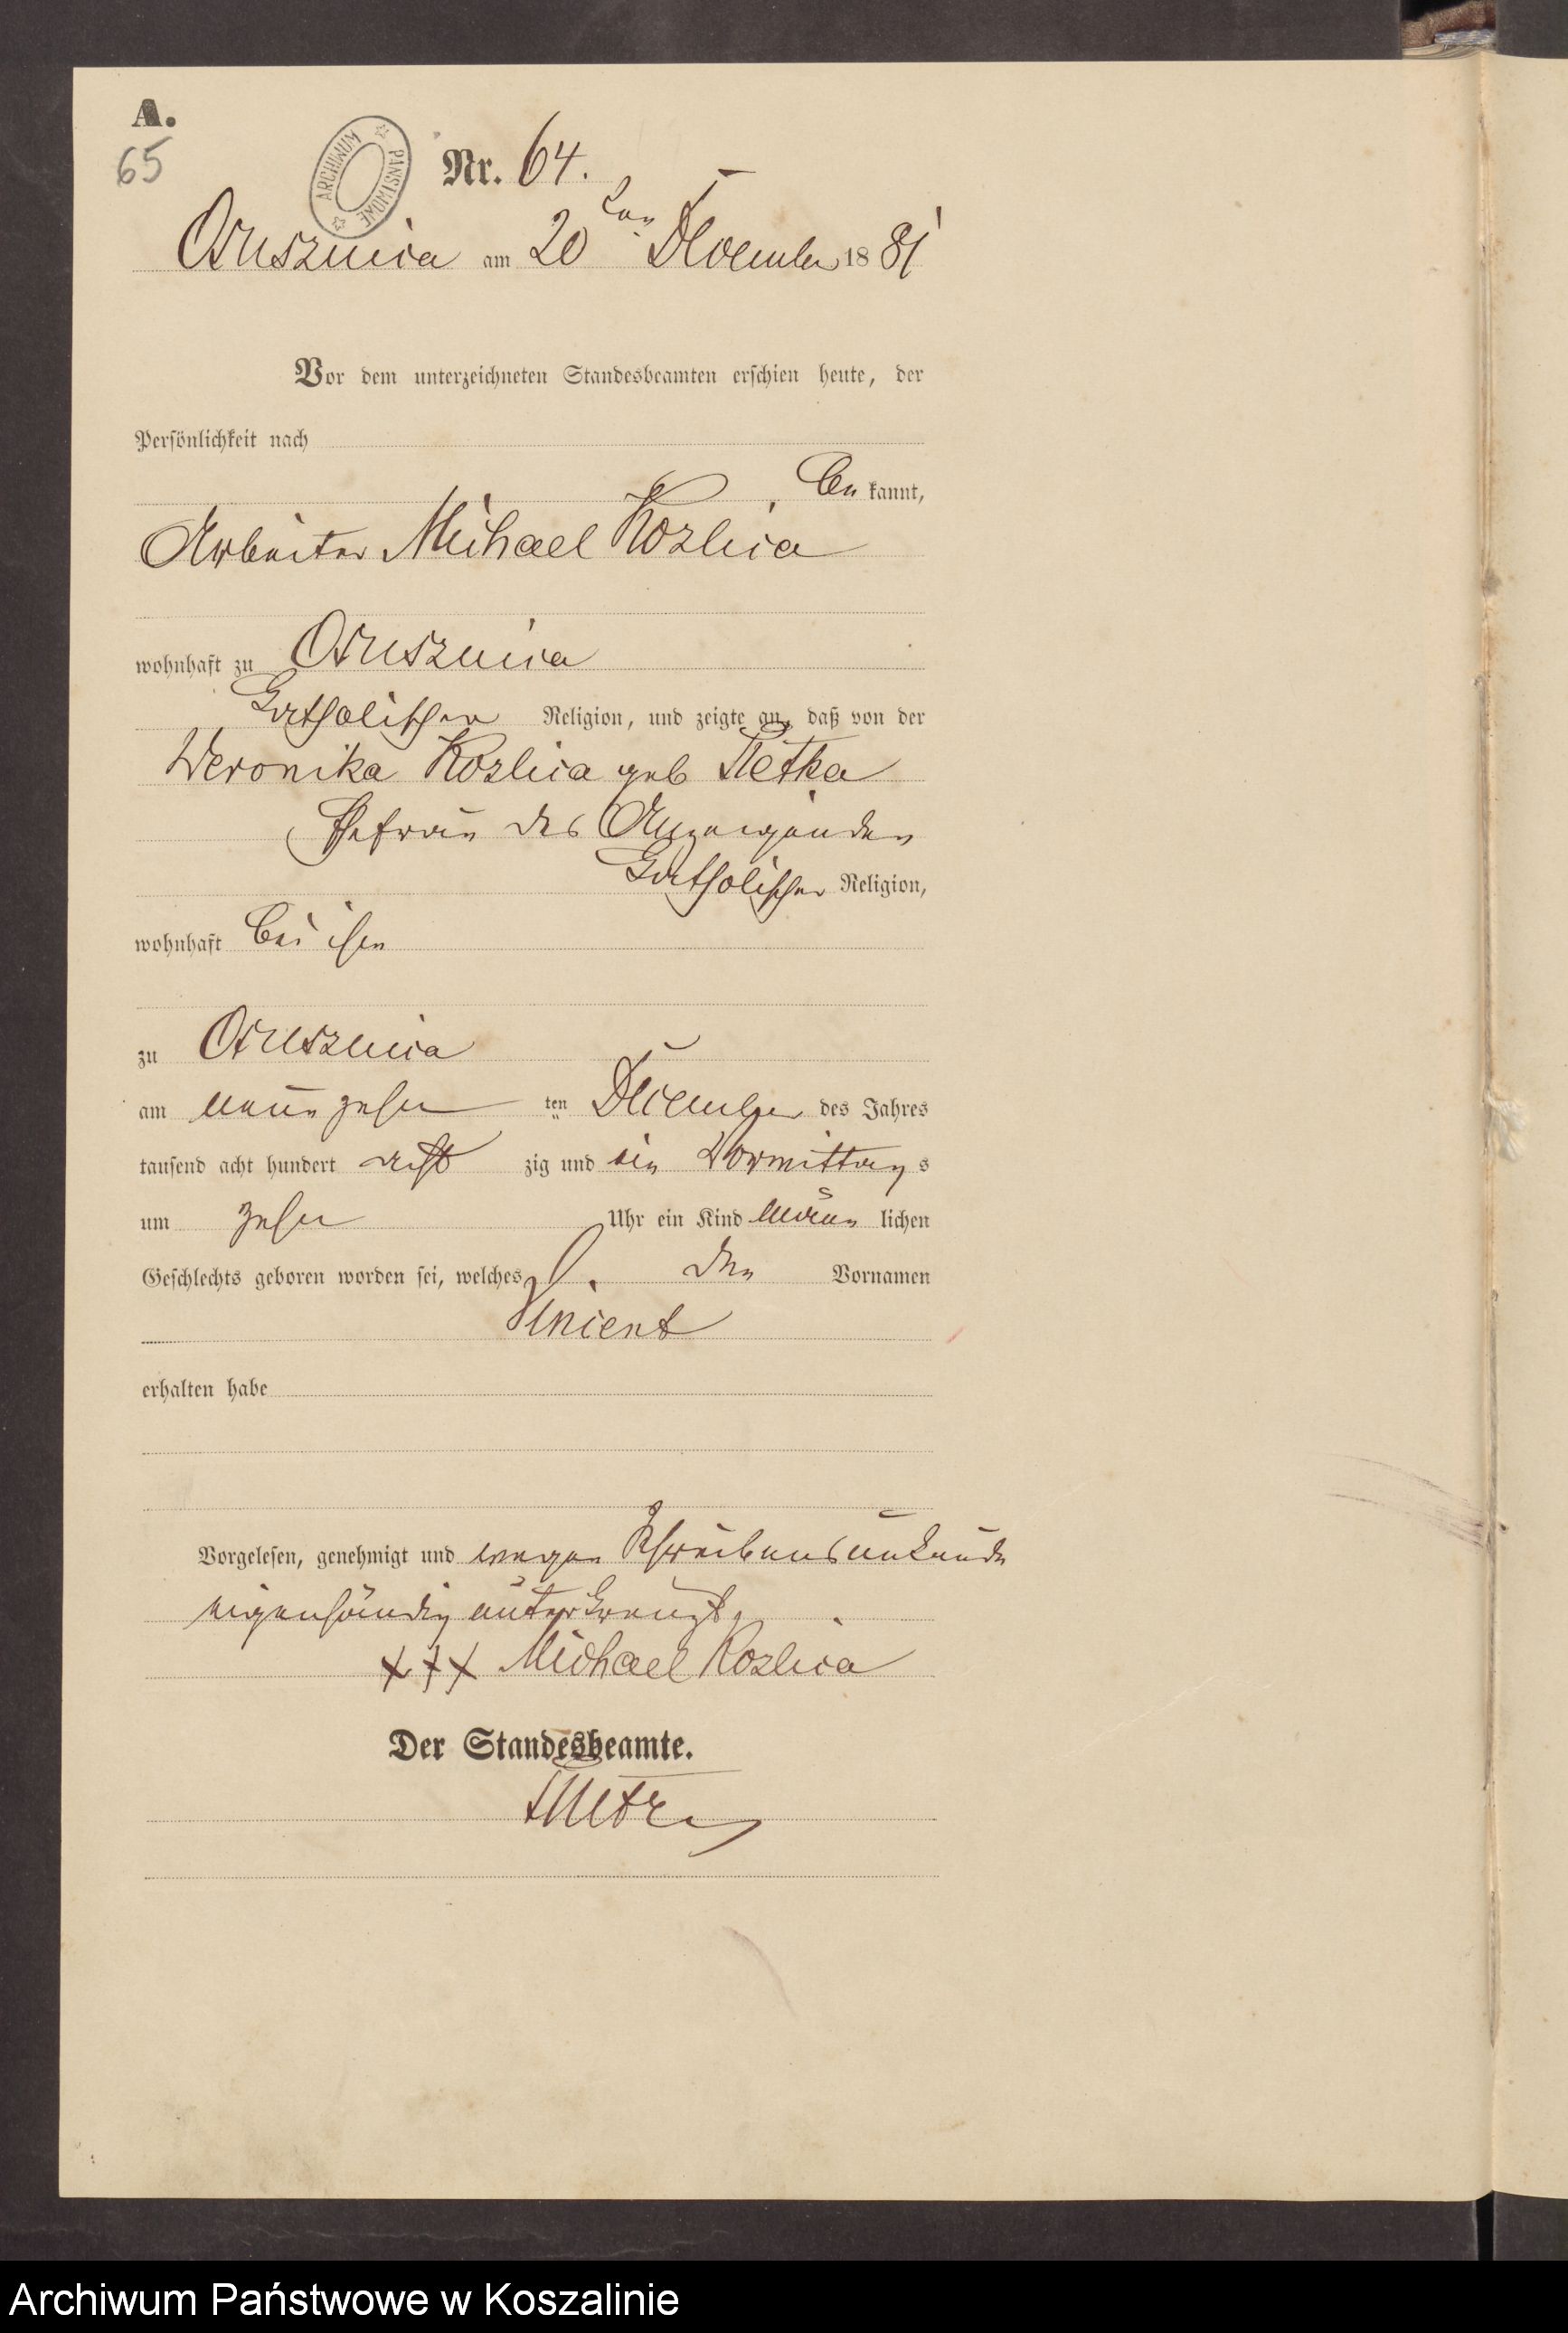 A.
65
ARCHIWUM PAŃSTWOWE
Nr. 64.
Ostusznica am 20 ten December 1881
Vor dem unterzeichneten Standesbeamten erschien heute, der
Persönlichkeit nach
bekannt,
Arbeiter Michael Kozlica
wohnhaft zu
katholischer Religion, und zeigte an, daß von der
Weronika Kozlica geb
Ehefrau des Anzeigenden
katholischer Religion,
wohnhaft bei ihm
zu
am neunzehn ten December des Jahres
tausend acht hundert acht zig und ein Vormittags
um zehn Uhr ein Kind männlichen
Geschlechts geboren worden sei, welches den Vornamen
Vincent
erhalten habe
Vorgelesen, genehmigt und wegen Schreibensunkunde
eigenhändig unterkreuzt.
+++ Michael Kozlica
Der Standesbeamte.
Archiwum Państwowe w Koszalinie